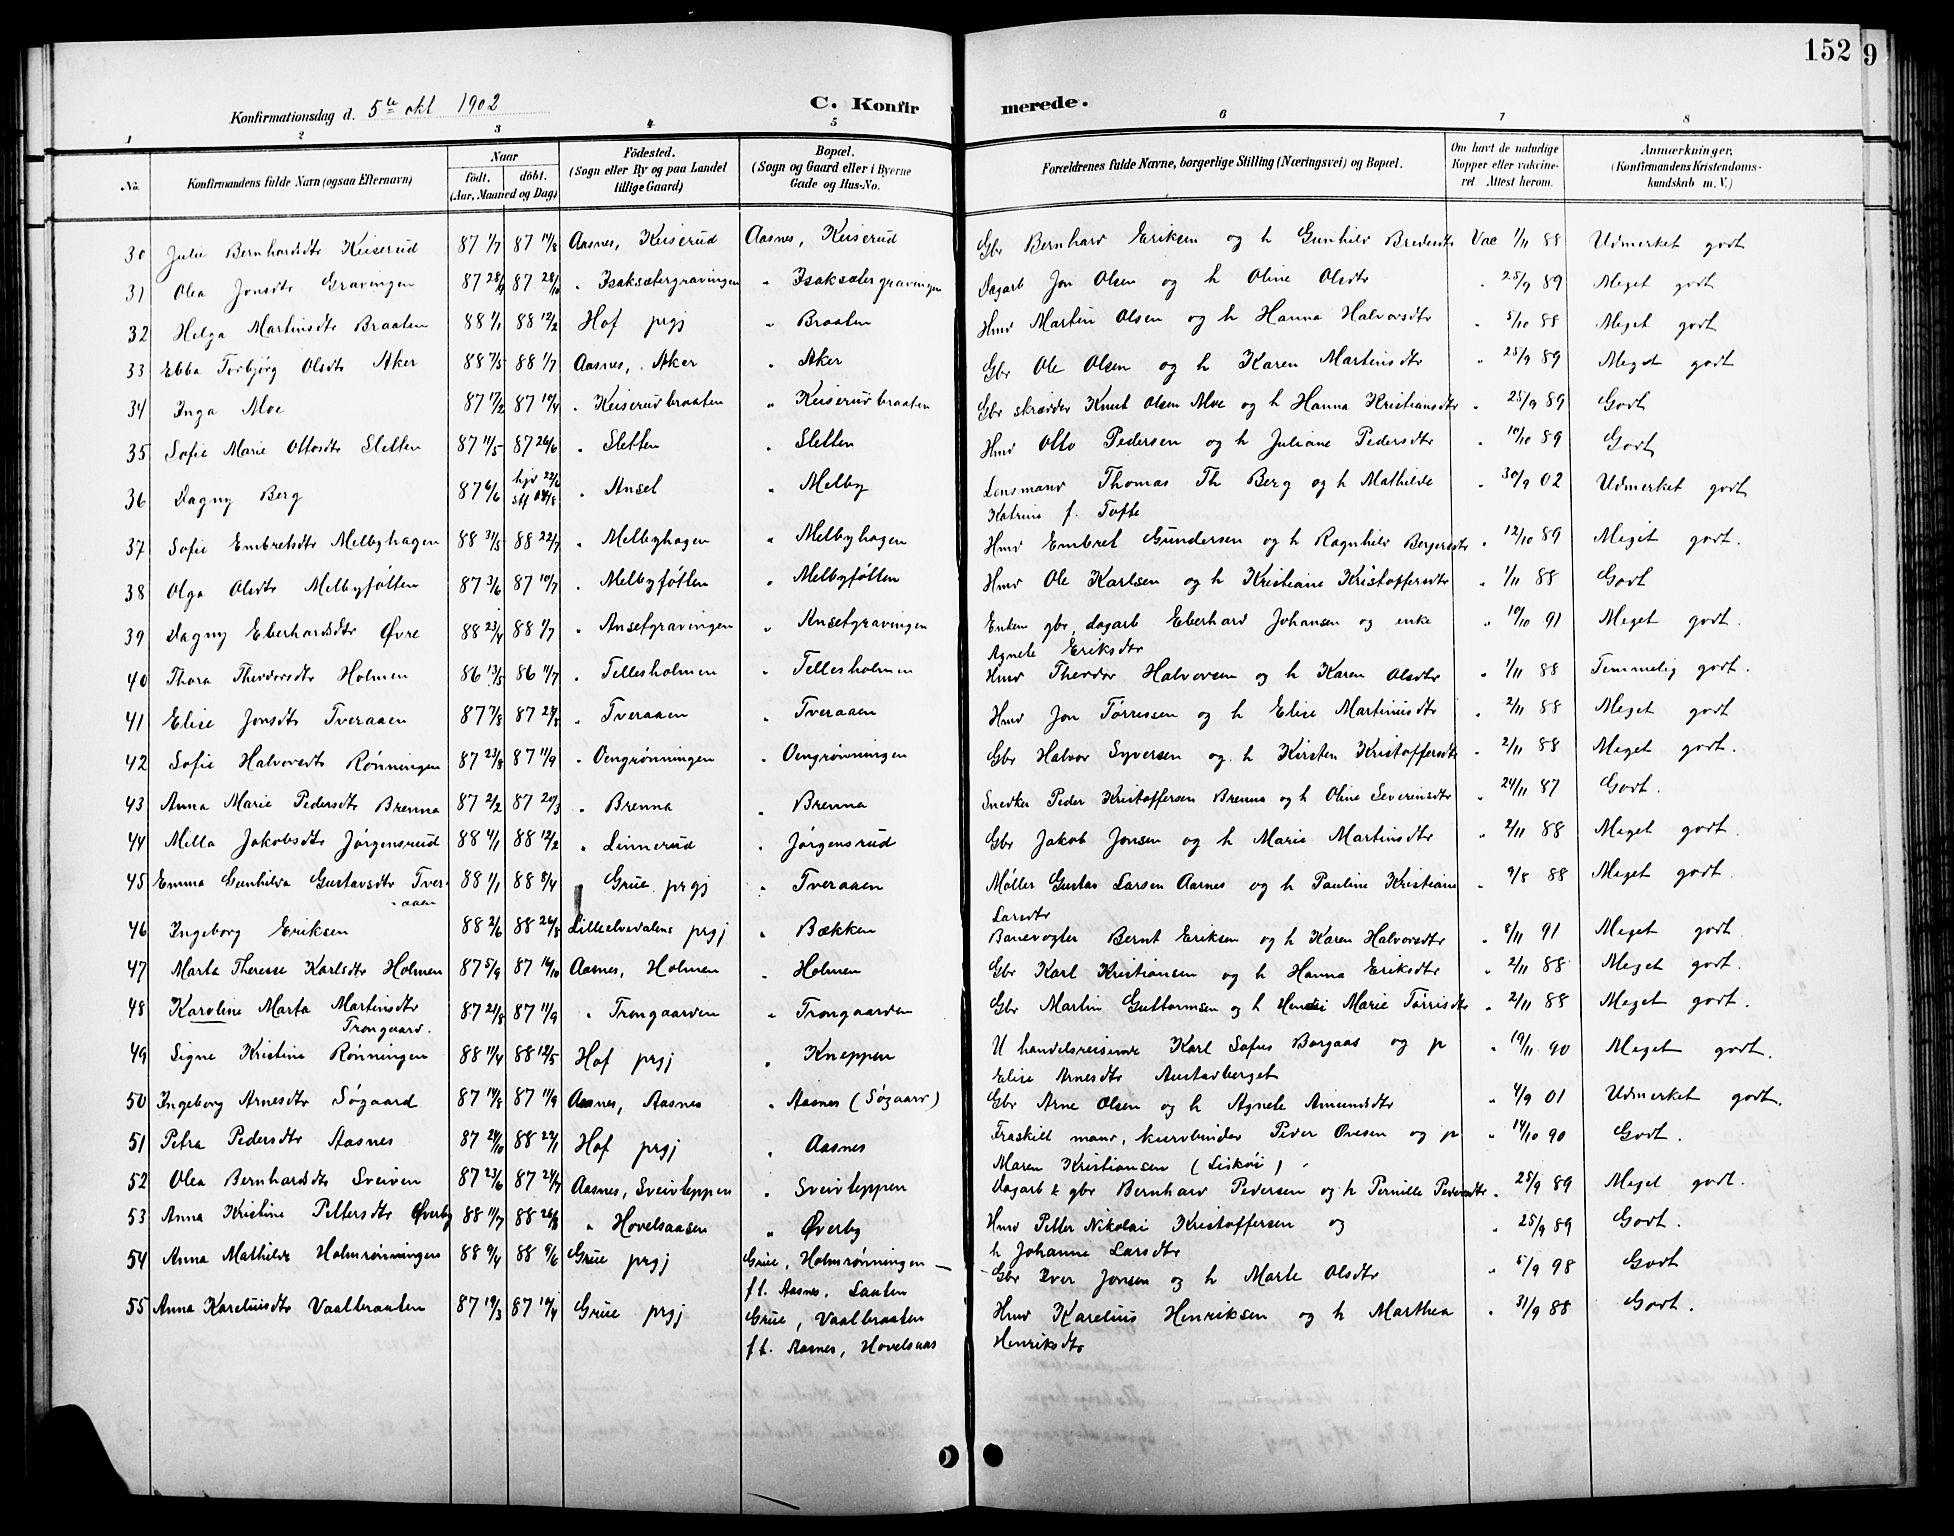 152 9
Konfirmationsdag d. 5te okt 1902
C. Konfirmerede.
1 2 3 4 5 6 7 8
No. Konfirmandens fulde Navn (ogsaa Efternavn) Naar født. døbt. (Aar, Maaned og Dag) Fødested. (Sogn eller By og paa Landet tillige Gaard) Bopæl. (Sogn og Gaard eller i Byerne Gade og Hus-No. Forældrenes fulde Navne, borgerlige Stilling (Næringsvei) og Bopæl. Om havt de naturlige Kopper eller vakcineret Attest herom. Anmærkninger, (Konfirmandens Kristendomskundskab m. V.)
30 Julie Bernhardsdtr Keiserud 87 1/7 87 14/8 Aasnes, Keiserud Aasnes, Keiserud Gbr Bernhard Eriksen og h Gunhild Bredesdtr Vac 1/11 88 Udmerket godt
31 Olea Jonsdtr Gravingen 87 28/9 87 28/10 " Isaksætergravingen " Isaksætergravingen Dagarb Jon Olsen og h Oline Olsdtr " 25/9 89 Meget godt
32 Helga Martinsdtr Braaten 88 1/1 88 12/2 Hof prgj " Braaten Hmd Martin Olsen og h Hanna Halvorsdtr " 5/10 88 Meget godt
33 Ebba Torbjørg Olsdtr Aker 88 7/5 88 1/7 Aasnes, Aker " Aker Gbr Ole Olsen og h Karen Martinsdtr " 25/9 89 Meget godt
34 Inga Moe 87 17/2 87 10/4 " Keiserudbraaten " Keiserudbraaten Gbr skrædder Knut Olsen Moe og h Hanna Kristiansdtr " 25/9 89 Godt
35 Sofie Marie Ottosdtr Sletten 87 11/5 87 26/6 " Sletten " Sletten Hmd Otto Pedersen og h Juliane Pedersdtr " 10/10 89 Godt
36 Dagny Berg 87 6/6 hjd 22/6 stf 14/8 " Anset " Melby Lensmand Thomas Th Berg og h Mathilde " 30/9 02 Udmerket godt
Katrine f. Tofte
37 Sofie Embretsdtr Melbyhagen 88 31/5 88 22/7 " Melbyhagen " Melbyhagen Hmd Embret Gundersen og h Ragnhild Bergersdtr " 12/10 89 Meget godt.
38 Olga Olsdtr Melbyføtten 87 3/6 87 10/7 " Melbyføtten " Melbyføtten Hmd Ole Karlsen og h Kristiane Kristoffersdtr " 1/11 88 Godt
39 Dagny Eberhardsdtr Øvre 88 23/4 88 1/7 " Ansetgravingen " Ansetgravingen Enkem gbr, dagarb Eberhard Johansen og enke " 10/10 91 Meget godt.
Agnete Eriksdtr
40 Thora Theodorsdtr Holmen 86 13/5 86 11/7 " Tellesholmen " Tellesholmen Hmd Theodor Halvorsen og h Karen Olsdtr " 1/11 88 Temmelig godt.
41 Elise Jonsdtr Tveraaen 87 7/8 87 28/8 " Tveraaen " Tveraaen Hmd Jon Tørressen og h Elise Martinusdtr " 2/11 88 Meget godt
42 Sofie Halvorsdtr Rønningen 87 23/8 87 11/9 " Oengrønningen " Oengrønningen Gbr Halvor Syversen og h Kirsten Kristoffersdtr " 2/11 88 Meget godt.
43 Anna Marie Pedersdtr Brenna 87 2/2 87 20/3 " Brenna " Brenna Snedker Peder Kristoffersen Brenna og h Oline Severinsdtr " 24/11 87 Godt.
44 Milla Jakobsdtr Jørgensrud 88 4/1 88 12/2 " Linnerud " Jørgensrud Gbr Jakob Jonsen og h Marie Martinsdtr " 2/11 88 Meget godt.
45 Emma Gunhilda Gustavsdtr Tver- 88 1/1 88 8/4 Grue prgj " Tveraaen Møller Gustav Larsen Aarnes og h Pauline Kristiane " 9/8 88 Meget godt
aaen Larsdtr
46 Ingeborg Eriksen 88 2/6 88 26/8 Lilleelvedalens prgj " Bækken Banevogter Bernt Eriksen og h Karen Halvorsdtr " 8/11 91 Meget godt.
47 Marta Therese Karlsdtr Holmen 87 5/9 87 16/10 Aasnes, Holmen " Holmen Gbr Karl Kristiansen og h Hanna Eriksdtr " 2/11 88 Meget godt.
48 Karoline Marta Martinsdtr 87 21/8 87 11/9 " Trongaarden " Trongaarden Gbr Martin Guttormsen og h Marie Tørrisdtr " 2/11 88 Meget godt.
Trongaard.
49 Signe Kristine Rønningen 88 11/4 88 12/5 Hof prgj " Kneppen U handelsreisende Karl Sofus Borgaas og p " 19/11 90 Meget godt.
Elise Arnesdtr Austadberget
50 Ingeborg Arnesdtr Søgaard 87 14/8 87 11/9 Aasnes, Aasnes " Aasnes (Søgaard) Gbr Arne Olsen og h Agnete Amundsdtr " 4/9 01 Udmerket godt.
51 Petra Pedersdtr Aasnes 87 24/10 88 29/1 Hof prgj " Aasnes Fraskilt mand, kurvbinder Peder Ovesen og p " 14/10 90 Godt.
Maren Kristiansen
52 Olea Bernhardsdtr Sveiven 87 23/6 87 24/7 Aasnes, Sveivteppen " Sveivteppen Dagarb & gbr Bernhard Pedersen og h Pernille Pedersdtr " 25/9 89 Meget godt.
53 Anna Kristine Pettersdtr Øverby 88 11/7 88 26/8 " Hovelsaasen " Øverby Hmd Petter Nikolai Kristoffersen og " 25/9 89 Godt.
h Johanne Larsdtr
54 Anna Mathilde Holmrønningen 88 9/4 88 9/6 Grue prgj Grue, Holmrønningen Gbr Iver Jonsen og h Marte Olsdtr " 5/9 98 Godt
f.t. Aasnes, Laaten
55 Anna Kareliusdtr Vaalbraaten 87 19/3 87 10/4 Grue prgj Grue, Vaalbraaten Hmd Karelius Henriksen og h Marthea " 31/9 88 Godt.
f.t. Aasnes, Hovelsaas Henriksdtr